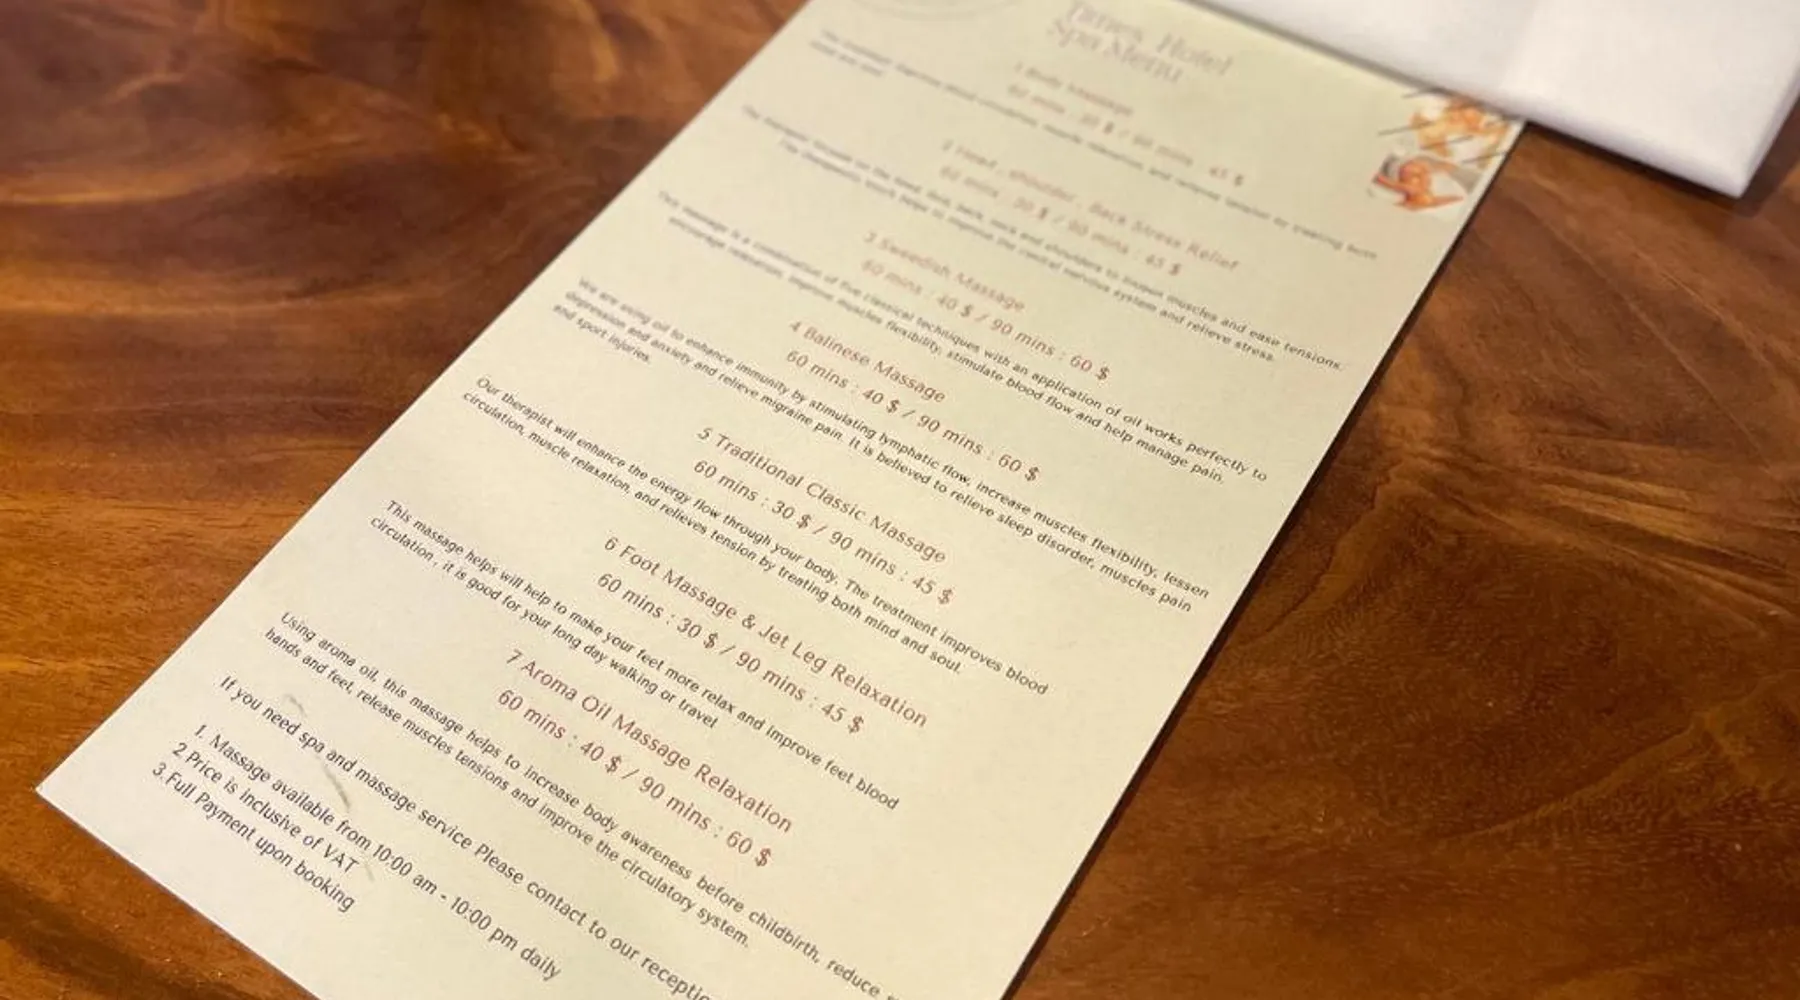 Hotel
Spa Menu
1 Body Massage
60 mins : 30 $ / 90 mins : 45 $
2 Head, shoulder, Back Stress Relief
60 mins : 30 $ / 90 mins : 45 $
The therapist focuses on the head, back, neck and shoulders to loosen muscles and ease tensions.
The therapeutic touch helps to improve the central nervous system and relieve stress.
3 Swedish Massage
60 mins : 40 $ / 90 mins : 60 $
This massage is a combination of five classical techniques with an application of oil works perfectly to
encourage relaxation, improve muscles flexibility, stimulate blood flow and help manage pain.
4 Balinese Massage
60 mins : 40 $ / 90 mins : 60 $
We are using oil to enhance immunity by stimulating lymphatic flow, increase muscles flexibility, lessen
depression and anxiety and relieve migraine pain. It is believed to relieve sleep disorder, muscles pain
and sport injuries.
5 Traditional Classic Massage
60 mins : 30 $ / 90 mins : 45 $
Our therapist will enhance the energy flow through your body. The treatment improves blood
circulation, muscle relaxation, and relieves tension by treating both mind and soul.
6 Foot Massage & Jet Leg Relaxation
60 mins : 30 $ / 90 mins : 45 $
This massage helps will help to make your feet more relax and improve feet blood
circulation , it is good for your long day walking or travel
7 Aroma Oil Massage Relaxation
60 mins : 40 $ / 90 mins : 60 $
Using aroma oil, this massage helps to increase body awareness before childbirth, reduce
hands and feet, release muscles tensions and improve the circulatory system.
If you need spa and massage service Please contact to our receptio
1. Massage available from 10:00 am - 10:00 pm daily
2 Price is inclusive of VAT
3. Full Payment upon booking